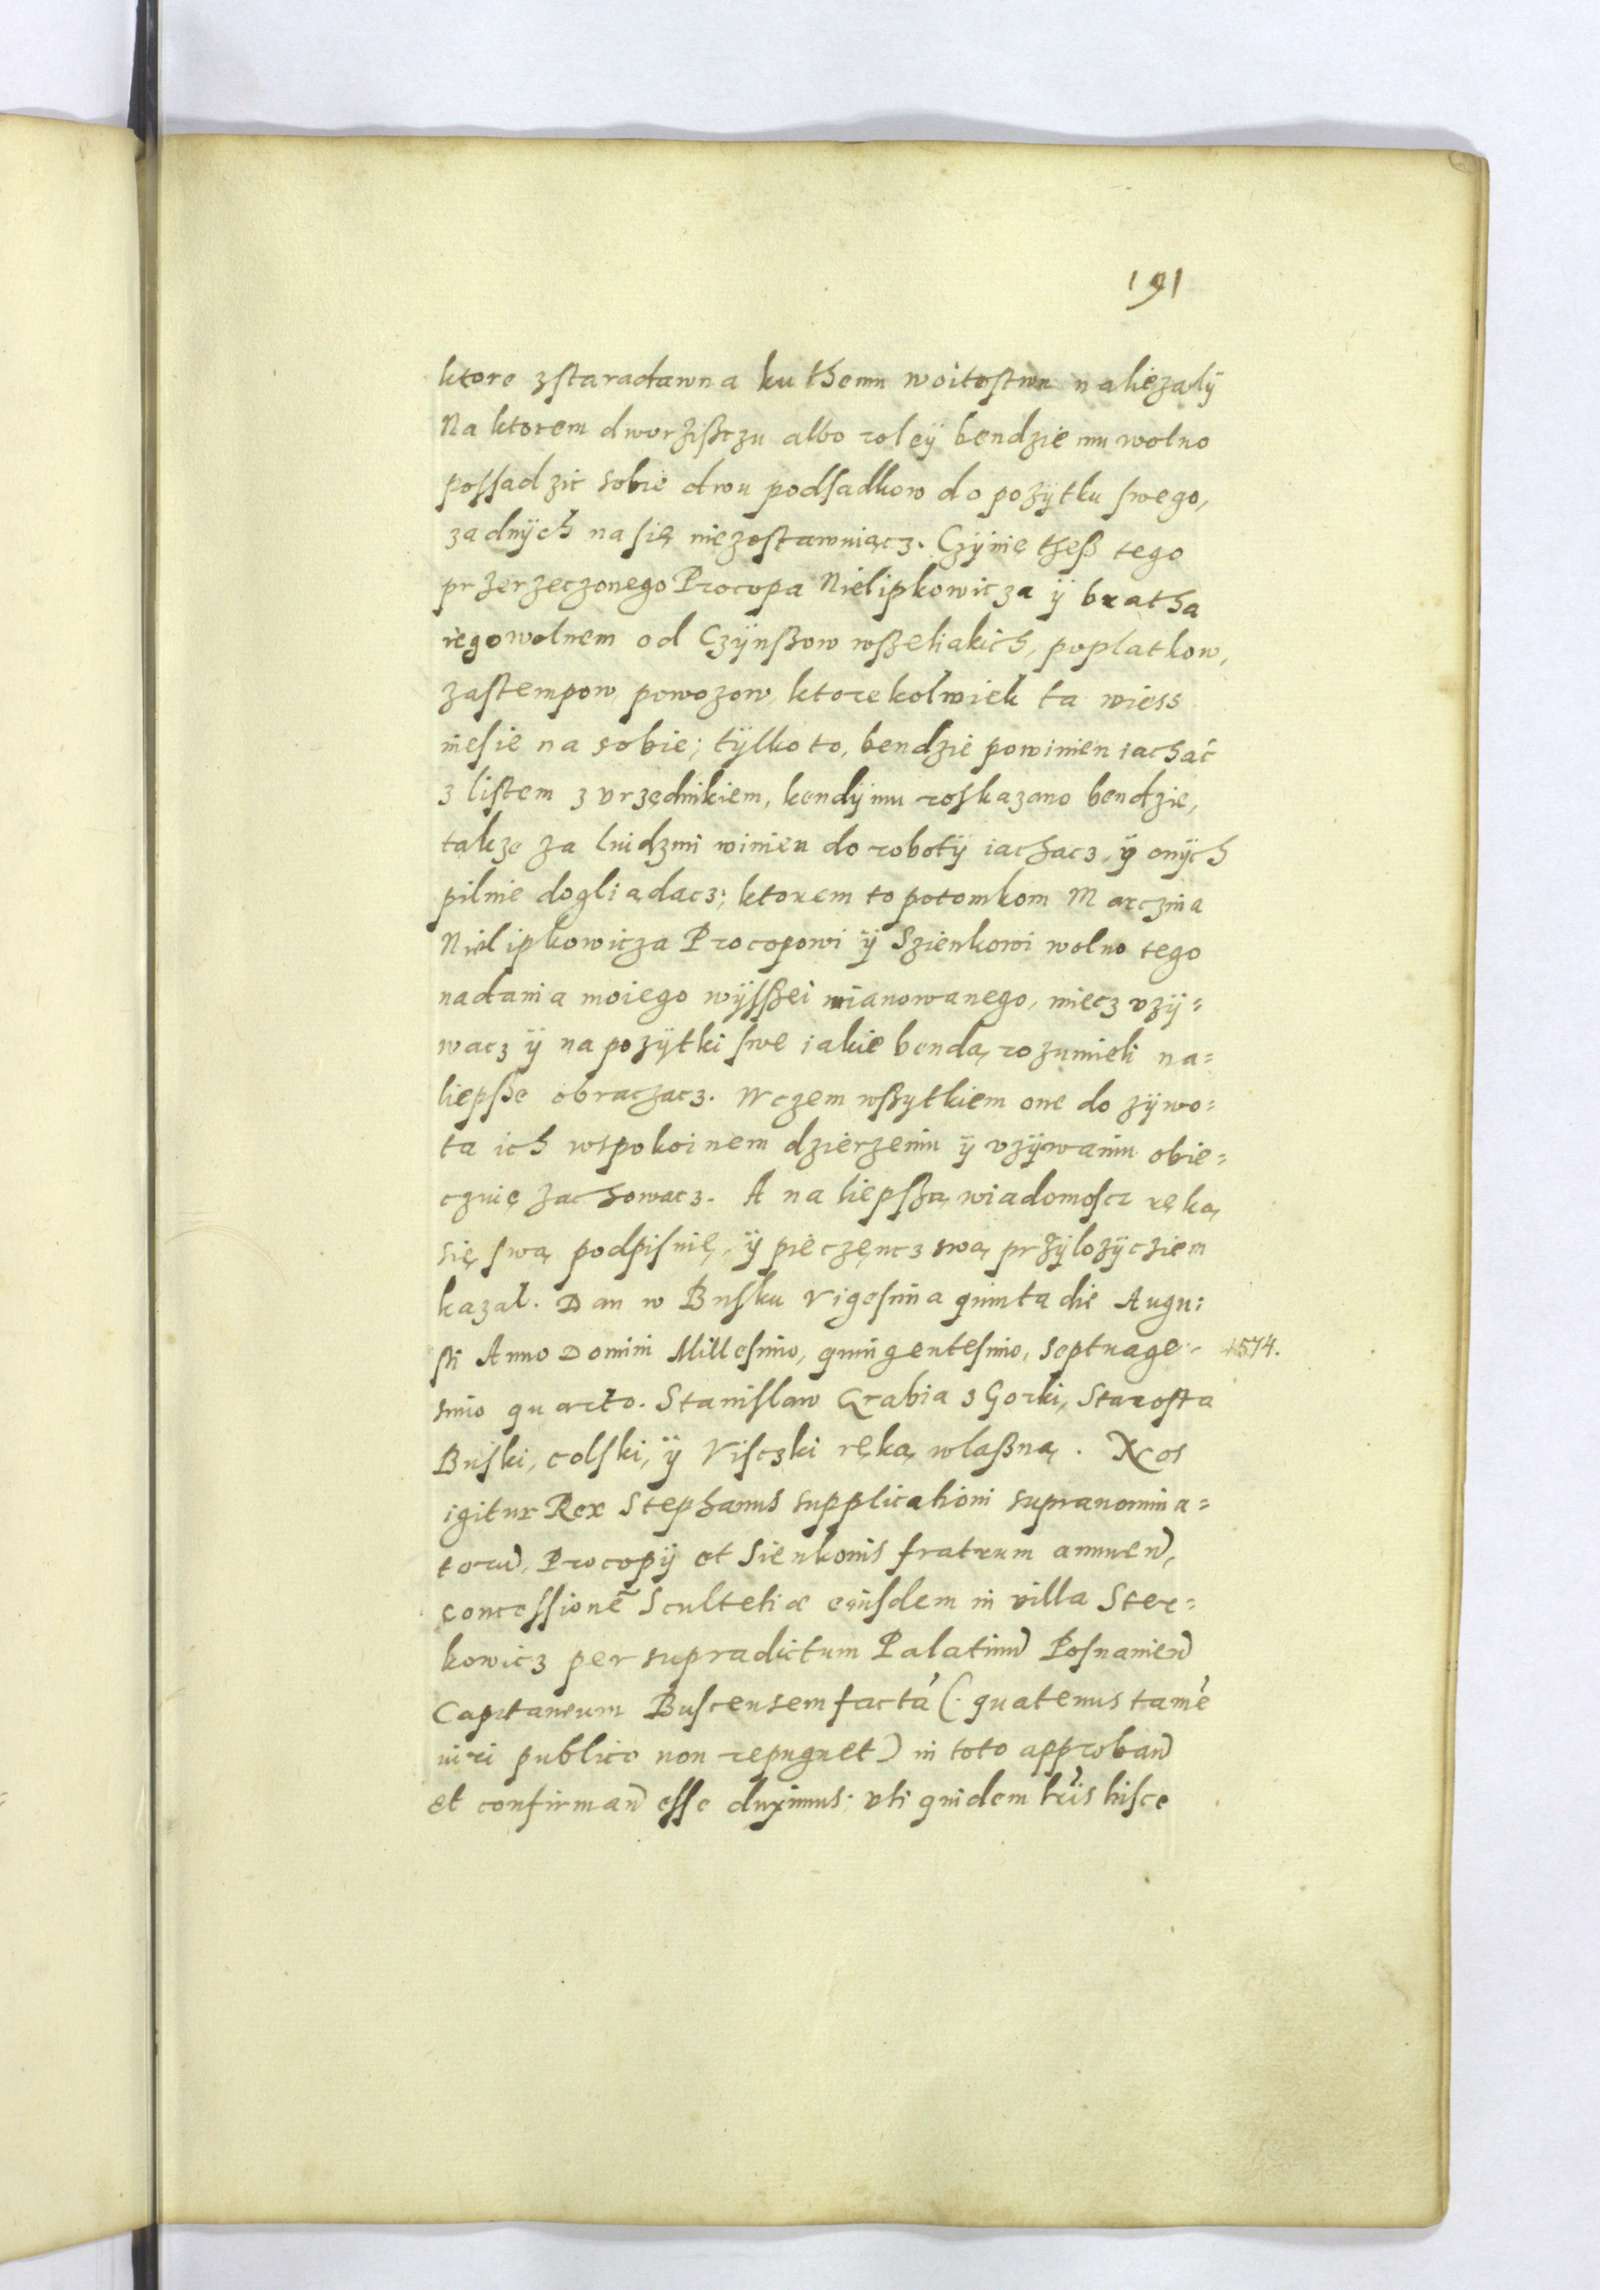 191
ktore zstaradawna ku themu woitostwu naliezalÿ
Na ktorem dworzißczu albo roleÿ bendzie mu wolno
possadzic sobie dwu podsadkow do pozÿtku swego,
zadnÿch na się niezostawuiącz. Czÿnię theß tego
przerzeczonego Procopa Nielipkowicza ÿ bratha
iego wolnem od Czÿnßow wßeliakich, poplatkow,
zastempow powozow ktorekolwiek ta wiess
niesie na sobie; tÿlko to, bendzie powinien iachać
z listem z vrzędnikiem, kendÿ mu roskazano bendzie,
takze za luidzmi winien do robotÿ iachacz, ÿ onÿch
pilnie dogliądacz; ktorem to potomkom Marczina
Nielipkowicza Procopowi ÿ Szienkowi wolno tego
nadania moiego wÿsßei mianowanego, miecz vzÿ=
wacz ÿ na pozÿtki swe iakie bendą rozumieli na=
liepsße obraczacz. W czem wßytkiem one do zÿwo=
ta ich wspokoinem dzierzeniu ÿ vzÿwaniu obie=
cznię zachowacz. A na liepßą wiadomoscz ręką
się swą podpisuię, ÿ pieczęncz swą przÿlozÿcziem
kazał. Dan w Busku Vigesima quinta die Augu=
sti Anno Domini Millesimo, quingentesimo, septuage- 1574.
simo quarto. Stanislaw Grabia z Gorki, Starosta
Buski, colski, ÿ Visczki ręką wlaßną. Nos
igitur Rex Stephanus supplicationi supranomina=
torum, Procopÿ et Sienkonis fratrum annuen,
concessionē Scultetiæ eiusdem in villa Ster=
kowicz per supradictum Palatinum Posnanien
Capitaneum Buscensem factá (quatenus tamē
iuri publico non repugnet) in toto approban
et confirman esse duximus; vti quidem lris hisce